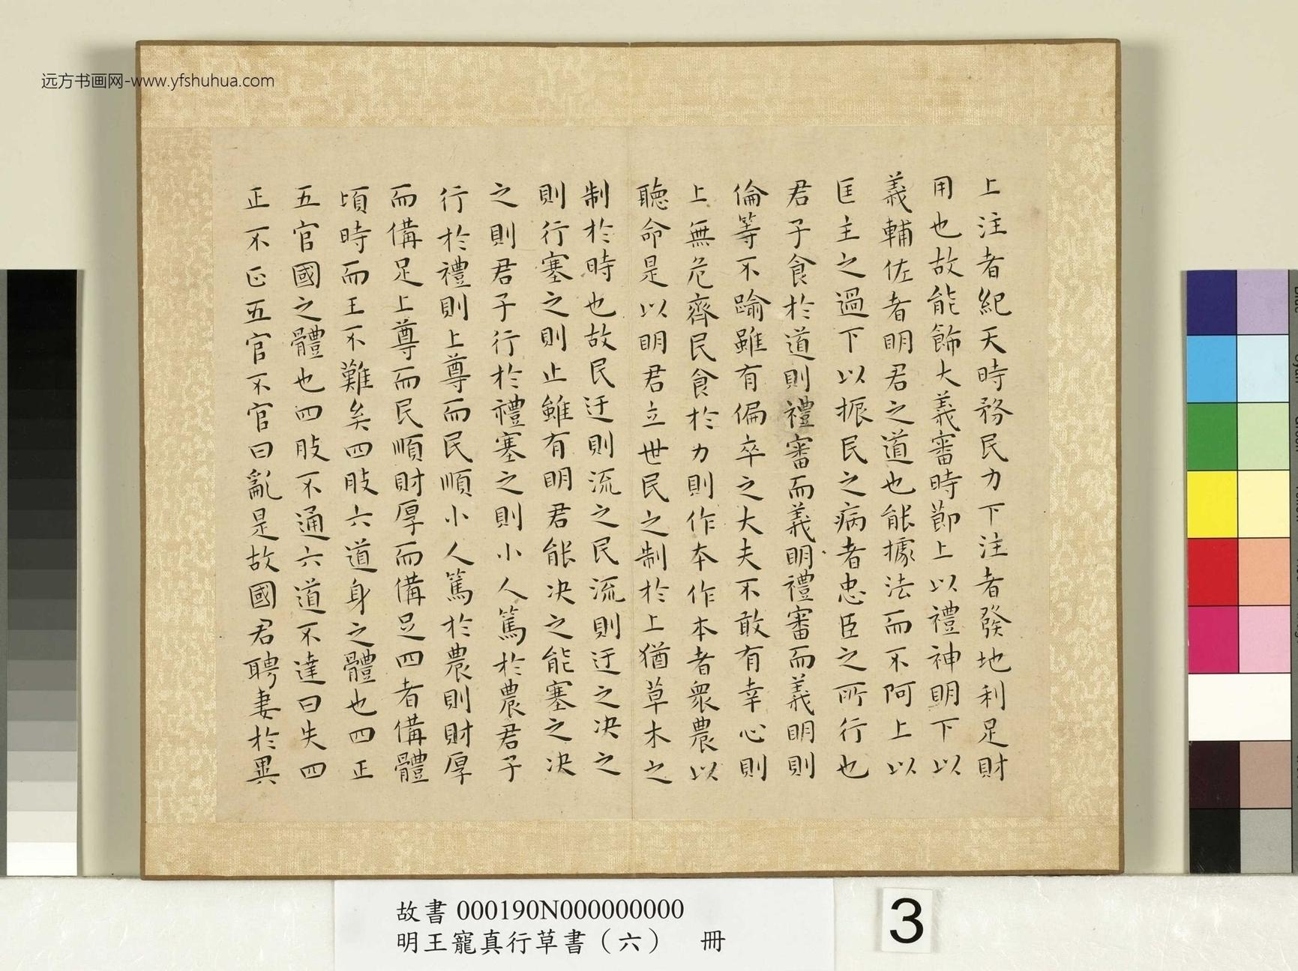 远方书画网-www.yfshuhua.com
上注者紀天時務民力下注者發地利足財
用也故能飾大義審時節上以禮神明下以
義輔佐者明君之道也能據法而不阿上以
匡主之過下以振民之病者忠臣之所行也
君子食於道則禮審而義明禮審而義明則
倫等不踰雖有偏卒之大夫不敢有幸心則
上無危齊民食於力則作本作本者衆農以
聽命是以明君立世民之制於上猶草木之
制於時也故民迂則流之民流則迂之決之
則行塞之則止雖有明君能決之能塞之決
之則君子行於禮塞之則小人篤於農君子
行於禮則上尊而民順小人篤於農則財厚
而備足上尊而民順財厚而備足四者備體
頃時而王不難矣四肢六道身之體也四正
五官國之體也四肢不通六道不達曰失四
正不正五官不官曰亂是故國君聘妻於異
故書 000190N000000000
明王寵真行草書（六） 冊
3